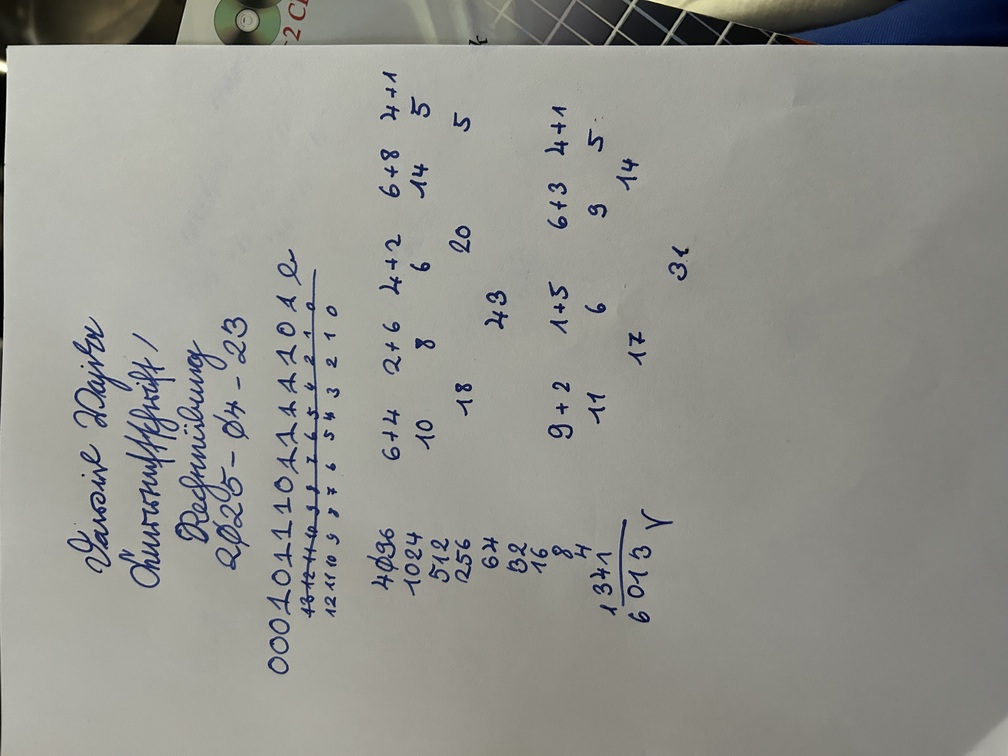 2025-04-23
0001011101111101
13 12 11 10 9 8 7 6 5 4 2 1 0
12 11 10 9 8 7 6 5 4 3 2 1 0
4096 6+4 2+6 4+2 6+8 4+1
1024 10 8 6 14 5
512
256 18 20 5
64 43
32
16
8 9+2 1+5 6+3 4+1
4 11 6 9 5
1341
6013 17 14
31